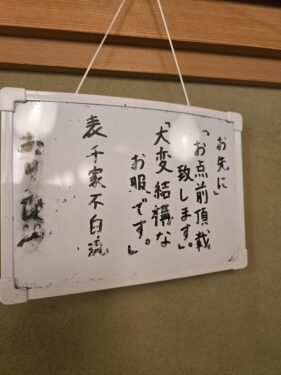 お先に」
「お点前頂戴
致します」。
「大変結講な
お服です。」
表千家不白流